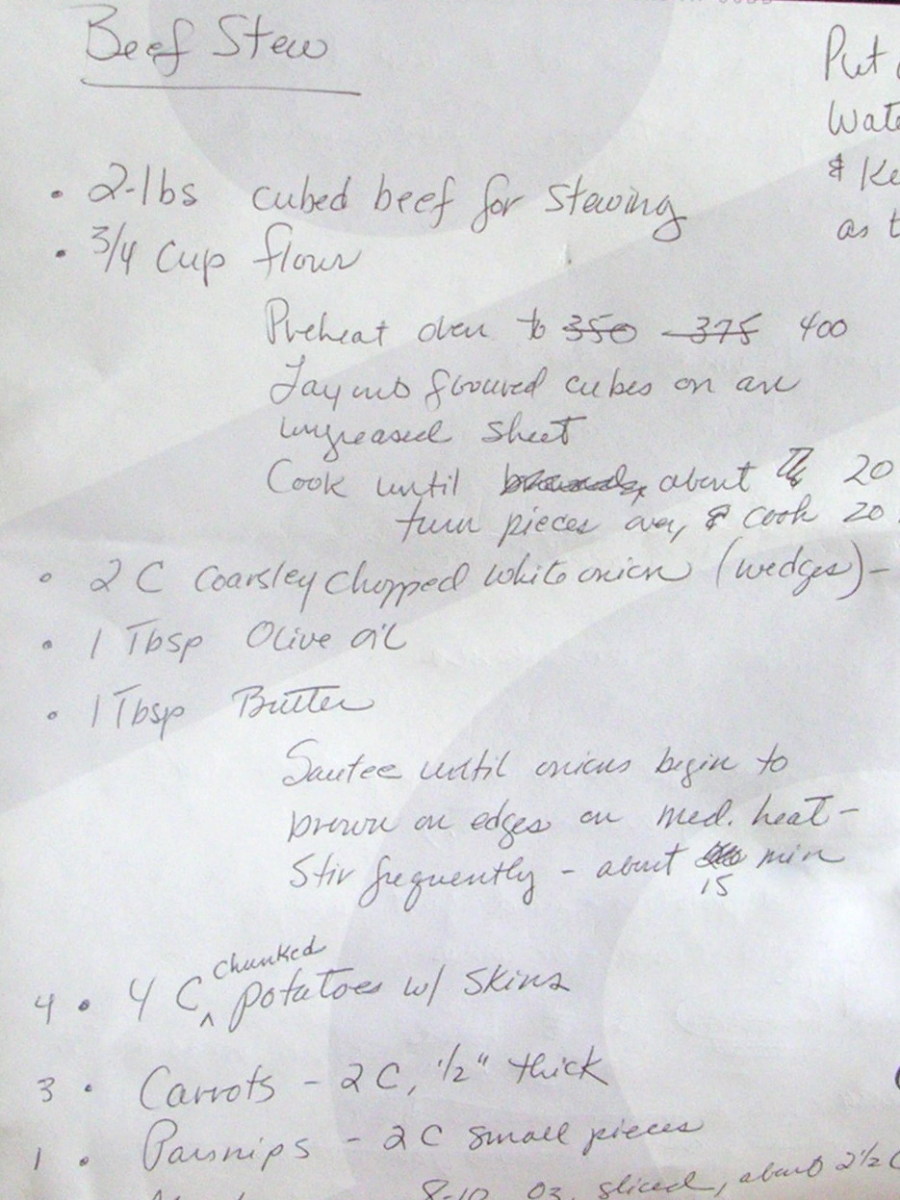 Beef Stew
• 2-lbs cubed beef for Stewing
• 3/4 Cup flour
Preheat oven to 350 375 400
Lay out floured cubes on an
ungreased sheet
Cook until about 20
turn pieces over, & cook 20
• 2 C Coarsley chopped white onion (wedges) –
• 1 Tbsp Olive oil
• 1 Tbsp Butter
Sautee until onions begin to
brown on edges on med. heat –
Stir frequently – about min
15
chunked
4 • 4 C ^ potatoes w/ Skins
3 • Carrots – 2 C, 1/2" thick
1 • Parsnips – 2 C small pieces
8-10 oz. sliced, about 2 1/2 C
Put
&
as